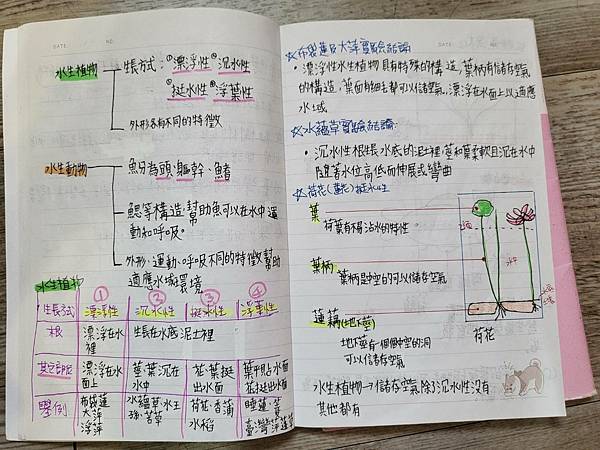 水生植物
生長方式:①漂浮性②沉水性
③挺水性④浮葉性
外形各有不同的特徵
水生動物
魚分為頭、軀幹、鰭
鰓等構造,幫助魚可以在水中運
動和呼吸。
外形、運動、呼吸不同的特徵幫助
適應水域環境
水生植物
生長方式 ①漂浮性 ②沉水性 ③挺水性 ④浮葉性
根 漂浮在水裡 生長在水底泥土裡
其它部位 漂浮在水面上 莖葉沉在水中 花葉挺出水面 葉平貼水面花挺出水面
舉例 布袋蓮 大萍 浮萍 水蘊草 水王孫 苦草 荷花 香蒲 水稻 睡蓮 臺灣萍蓬草
DATE NO.
☆布袋蓮&大萍實驗結論
•漂浮性水生植物具有特殊的構造,葉柄有儲存空氣
的構造,葉面有細毛幫可以儲空氣,漂浮在水面上以適應
水域
☆水蘊草實驗結論:
•沉水性根生長水底的泥土裡,莖和葉柔軟且沉在水中
隨著水位高低而伸展或彎曲
☆荷花(蓮花)挺水性
葉
荷葉有不易沾水的特性
葉柄
葉柄是中空的可以儲存空氣
蓮藕(地下莖)
地下莖有一個個中空的洞
可以儲存空氣
荷花
水生植物→儲存空氣除了沉水性沒有
其他都有